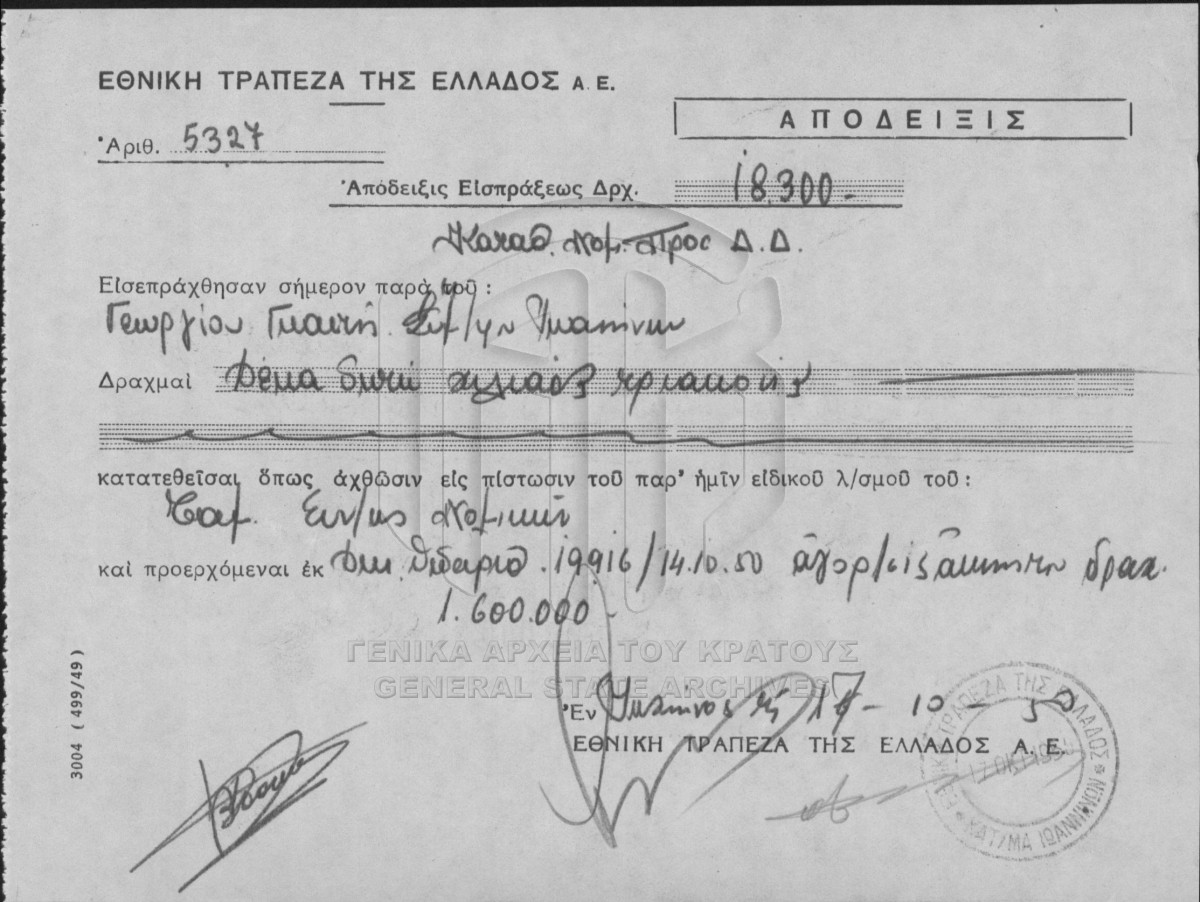 ΕΘΝΙΚΗ ΤΡΑΠΕΖΑ ΤΗΣ ΕΛΛΑΔΟΣ Α.Ε.
ΑΠΟΔΕΙΞΙΣ
Ἀριθ. 5327
Ἀπόδειξις Εἰσπράξεως Δρχ. 18.300.-
Καταθ. Νομ. Προς Δ.Δ.
Εἰσεπράχθησαν σήμερον παρὰ τοῦ :
Γεωργίου Ιωαννίνων
Δραχμαὶ Δέκα οκτώ χιλιάδες τριακοσίες
κατατεθεῖσαι ὅπως ἀχθῶσιν εἰς πίστωσιν τοῦ παρ' ἡμῖν εἰδικοῦ λ/σμοῦ τοῦ :
Ταμ. Συν/ως Νομικών
καὶ προερχόμεναι ἐκ 19916/14.10.50 ἀγορ/εις ακινητου δραχ.
1.600.000-
ΓΕΝΙΚΑ ΑΡΧΕΙΑ ΤΟΥ ΚΡΑΤΟΥΣ
GENERAL STATE ARCHIVES
Ἐν Ιωαννίνοις τῇ 17-10-50
ΕΘΝΙΚΗ ΤΡΑΠΕΖΑ ΤΗΣ ΕΛΛΑΔΟΣ Α.Ε.
ΕΘΝΙΚΗ ΤΡΑΠΕΖΑ ΤΗΣ ΕΛΛΑΔΟΣ * ΚΑΤ/ΜΑ ΙΩΑΝΝΙΝΩΝ *
17 ΟΚΤ 1950
3004 (499/49)